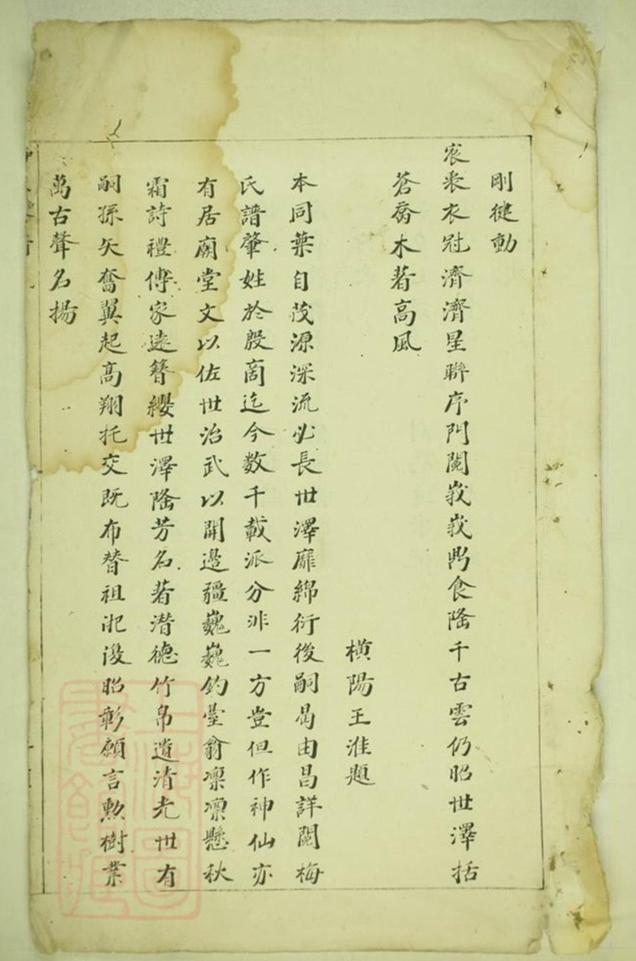 剛健動
衮裳衣冠濟濟星聯序門闌峩峩鼎食隆千古雲仍昭世澤括
蒼喬木著高風
橫陽王淮題
本同葉自茂源深流必長世澤靡綿衍後嗣曷由昌詳閱梅
氏譜肇姓於殷商迄今数千載派分非一方豈但作神仙亦
有居廟堂文以佐世治武以開邊疆巍巍釣臺翁凛凛懸秋
霜詩禮傳家遠簪纓世澤隆芳名著潜德竹帛遺清光世有
嗣孫矢奮翼起高翔托交既布替祖汜後昭彰願言勲樹業
萬古聲名揚